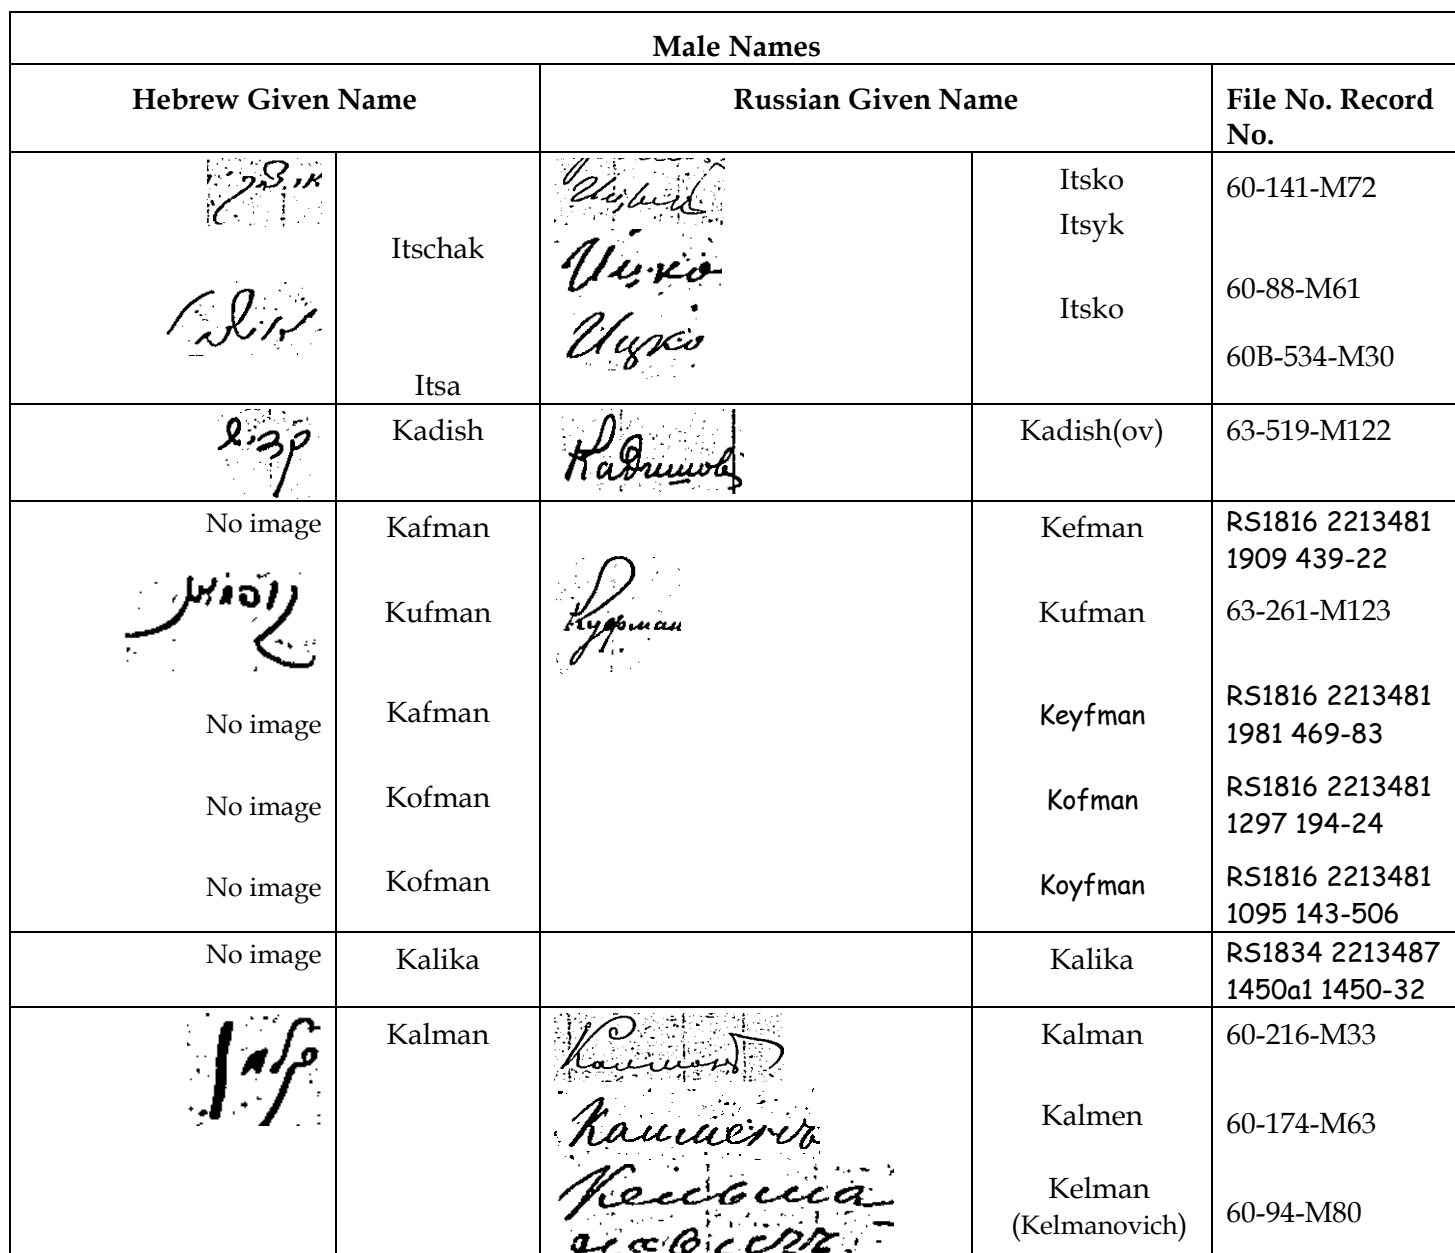 Male Names
Hebrew Given Name Russian Given Name File No. Record No.
Itschak Itsko 60-141-M72
Itsyk
Ицко 60-88-M61
Itsko
Ицко 60B-534-M30
Itsa
קדיש Kadish Кадишов Kadish(ov) 63-519-M122
No image Kafman Kefman RS1816 2213481
1909 439-22
קופמאן Kufman Куфман Kufman 63-261-M123
No image Kafman Keyfman RS1816 2213481
1981 469-83
No image Kofman Kofman RS1816 2213481
1297 194-24
No image Kofman Koyfman RS1816 2213481
1095 143-506
No image Kalika Kalika RS1834 2213487
1450a1 1450-32
קלמן Kalman Калманъ Kalman 60-216-M33
Калменъ Kalmen 60-174-M63
Кельма Kelman
(Kelmanovich) 60-94-M80